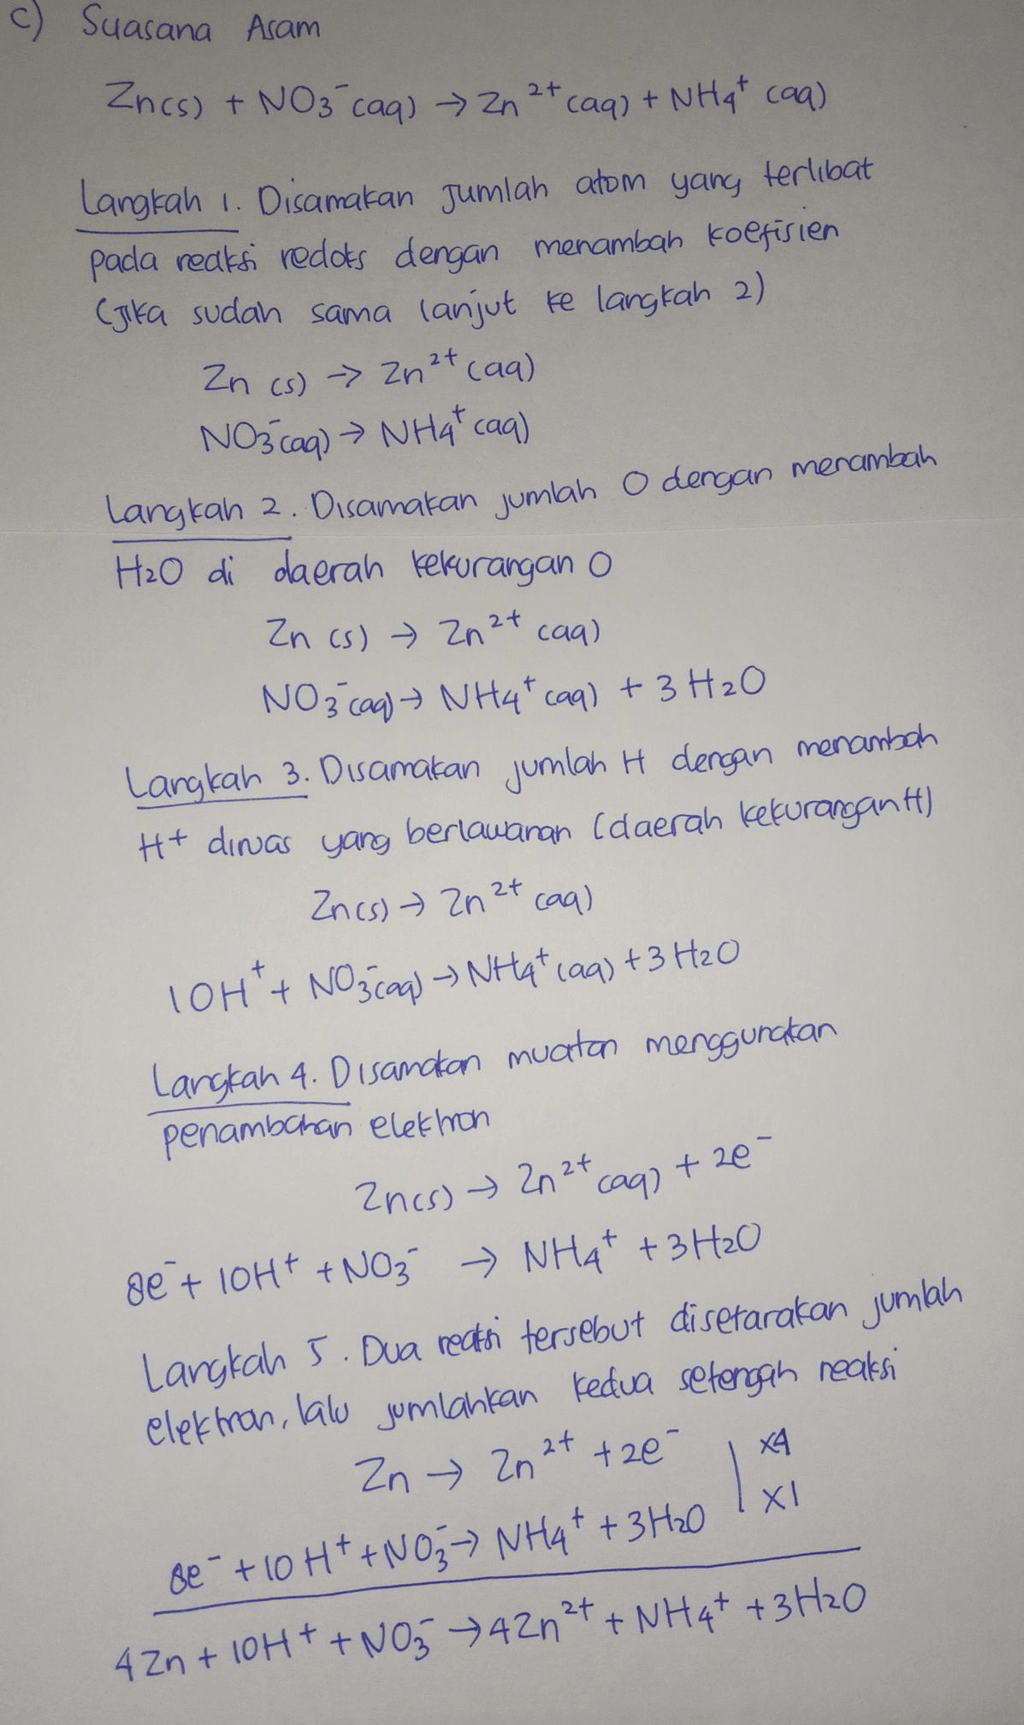 c) Suasana Asam
Zn(s) + NO3⁻(aq) → Zn²⁺(aq) + NH4⁺(aq)
Langkah 1. Disamakan Jumlah atom yang terlibat
pada reaksi redoks dengan menambah koefisien
(Jika sudah sama lanjut ke langkah 2)
Zn (s) → Zn²⁺(aq)
NO3⁻(aq) → NH4⁺(aq)
Langkah 2. Disamakan jumlah O dengan menambah
H2O di daerah kekurangan O
Zn (s) → Zn²⁺(aq)
NO3⁻(aq) → NH4⁺(aq) + 3 H2O
Langkah 3. Disamakan jumlah H dengan menambah
H+ diruas yang berlawanan (daerah kekurangan H)
Zn(s) → Zn²⁺(aq)
10H⁺ + NO3⁻(aq) → NH4⁺(aq) + 3 H2O
Langkah 4. Disamakan muatan menggunakan
penambahan elektron
Zn(s) → Zn²⁺(aq) + 2e⁻
8e⁻ + 10H⁺ + NO3⁻ → NH4⁺ + 3H2O
Langkah 5. Dua reaksi tersebut disetarakan jumlah
elektron, lalu jumlahkan kedua setengah reaksi
Zn → Zn²⁺ + 2e⁻ | x4
8e⁻ + 10 H⁺ + NO3⁻ → NH4⁺ + 3H2O | x1
4Zn + 10H⁺ + NO3⁻ → 4Zn²⁺ + NH4⁺ + 3H2O